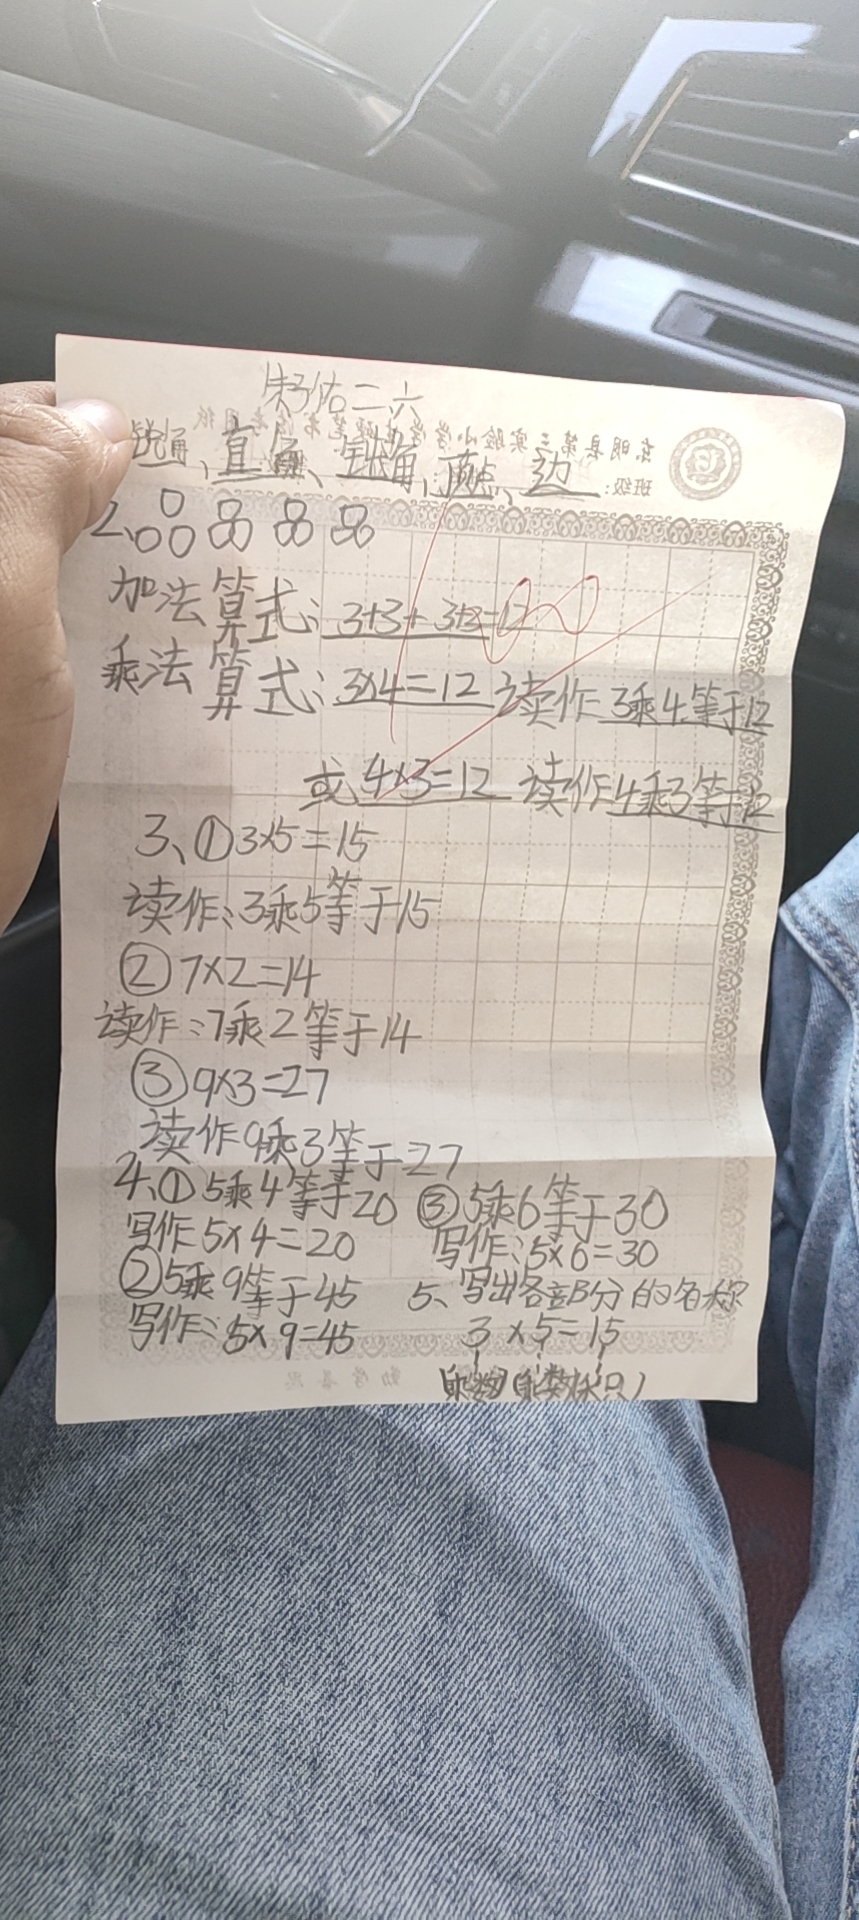 朱子佑二六
锐角、直角、钝角、顶点、边
2、
加法算式：3+3+3+3=12
乘法算式：3×4=12 读作 3乘4等于12
或 4×3=12 读作 4乘3等于12
3、①3×5=15
读作：3乘5等于15
②7×2=14
读作：7乘2等于14
③9×3=27
读作9乘3等于27
4、①5乘4等于20
写作5×4=20
②5乘9等于45
写作：5×9=45
③5乘6等于30
写作：5×6=30
5、写出各部分的名称
3×5=15
(乘数)(乘数)(积)
东明县第三实验小学
班级：